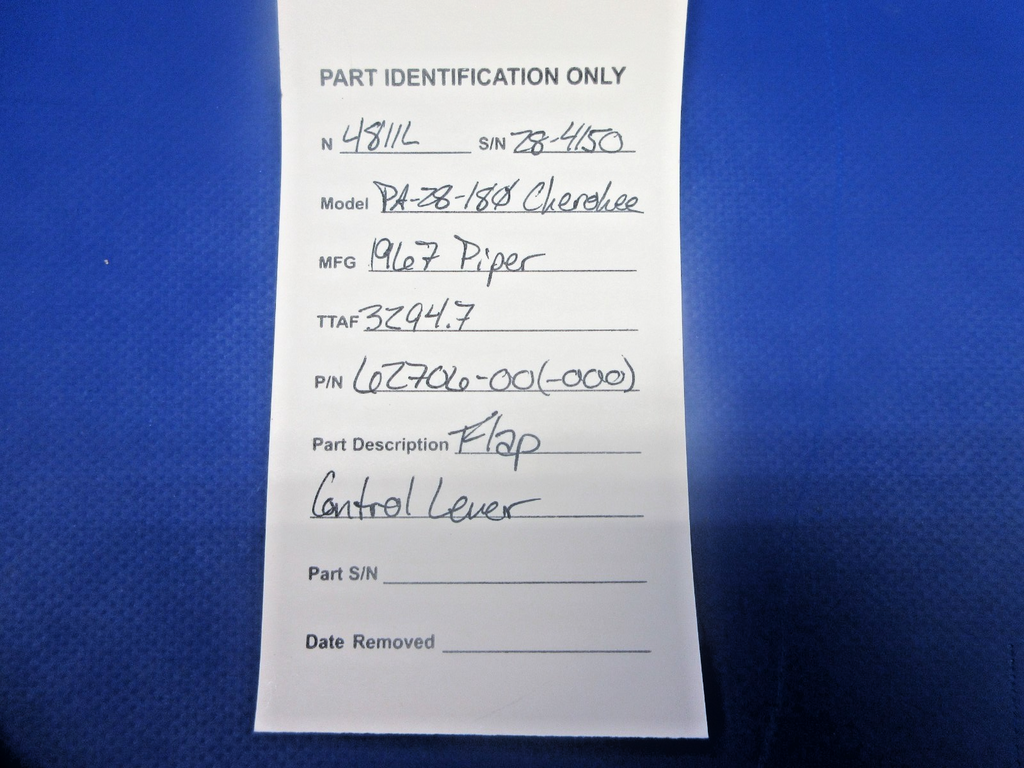 PART IDENTIFICATION ONLY
N 4811L S/N 28-4150
Model PA-28-180 Cherokee
MFG 1967 Piper
TTAF 3294.7
P/N 62706-00(-000)
Part Description Flap
Control Lever
Part S/N
Date Removed